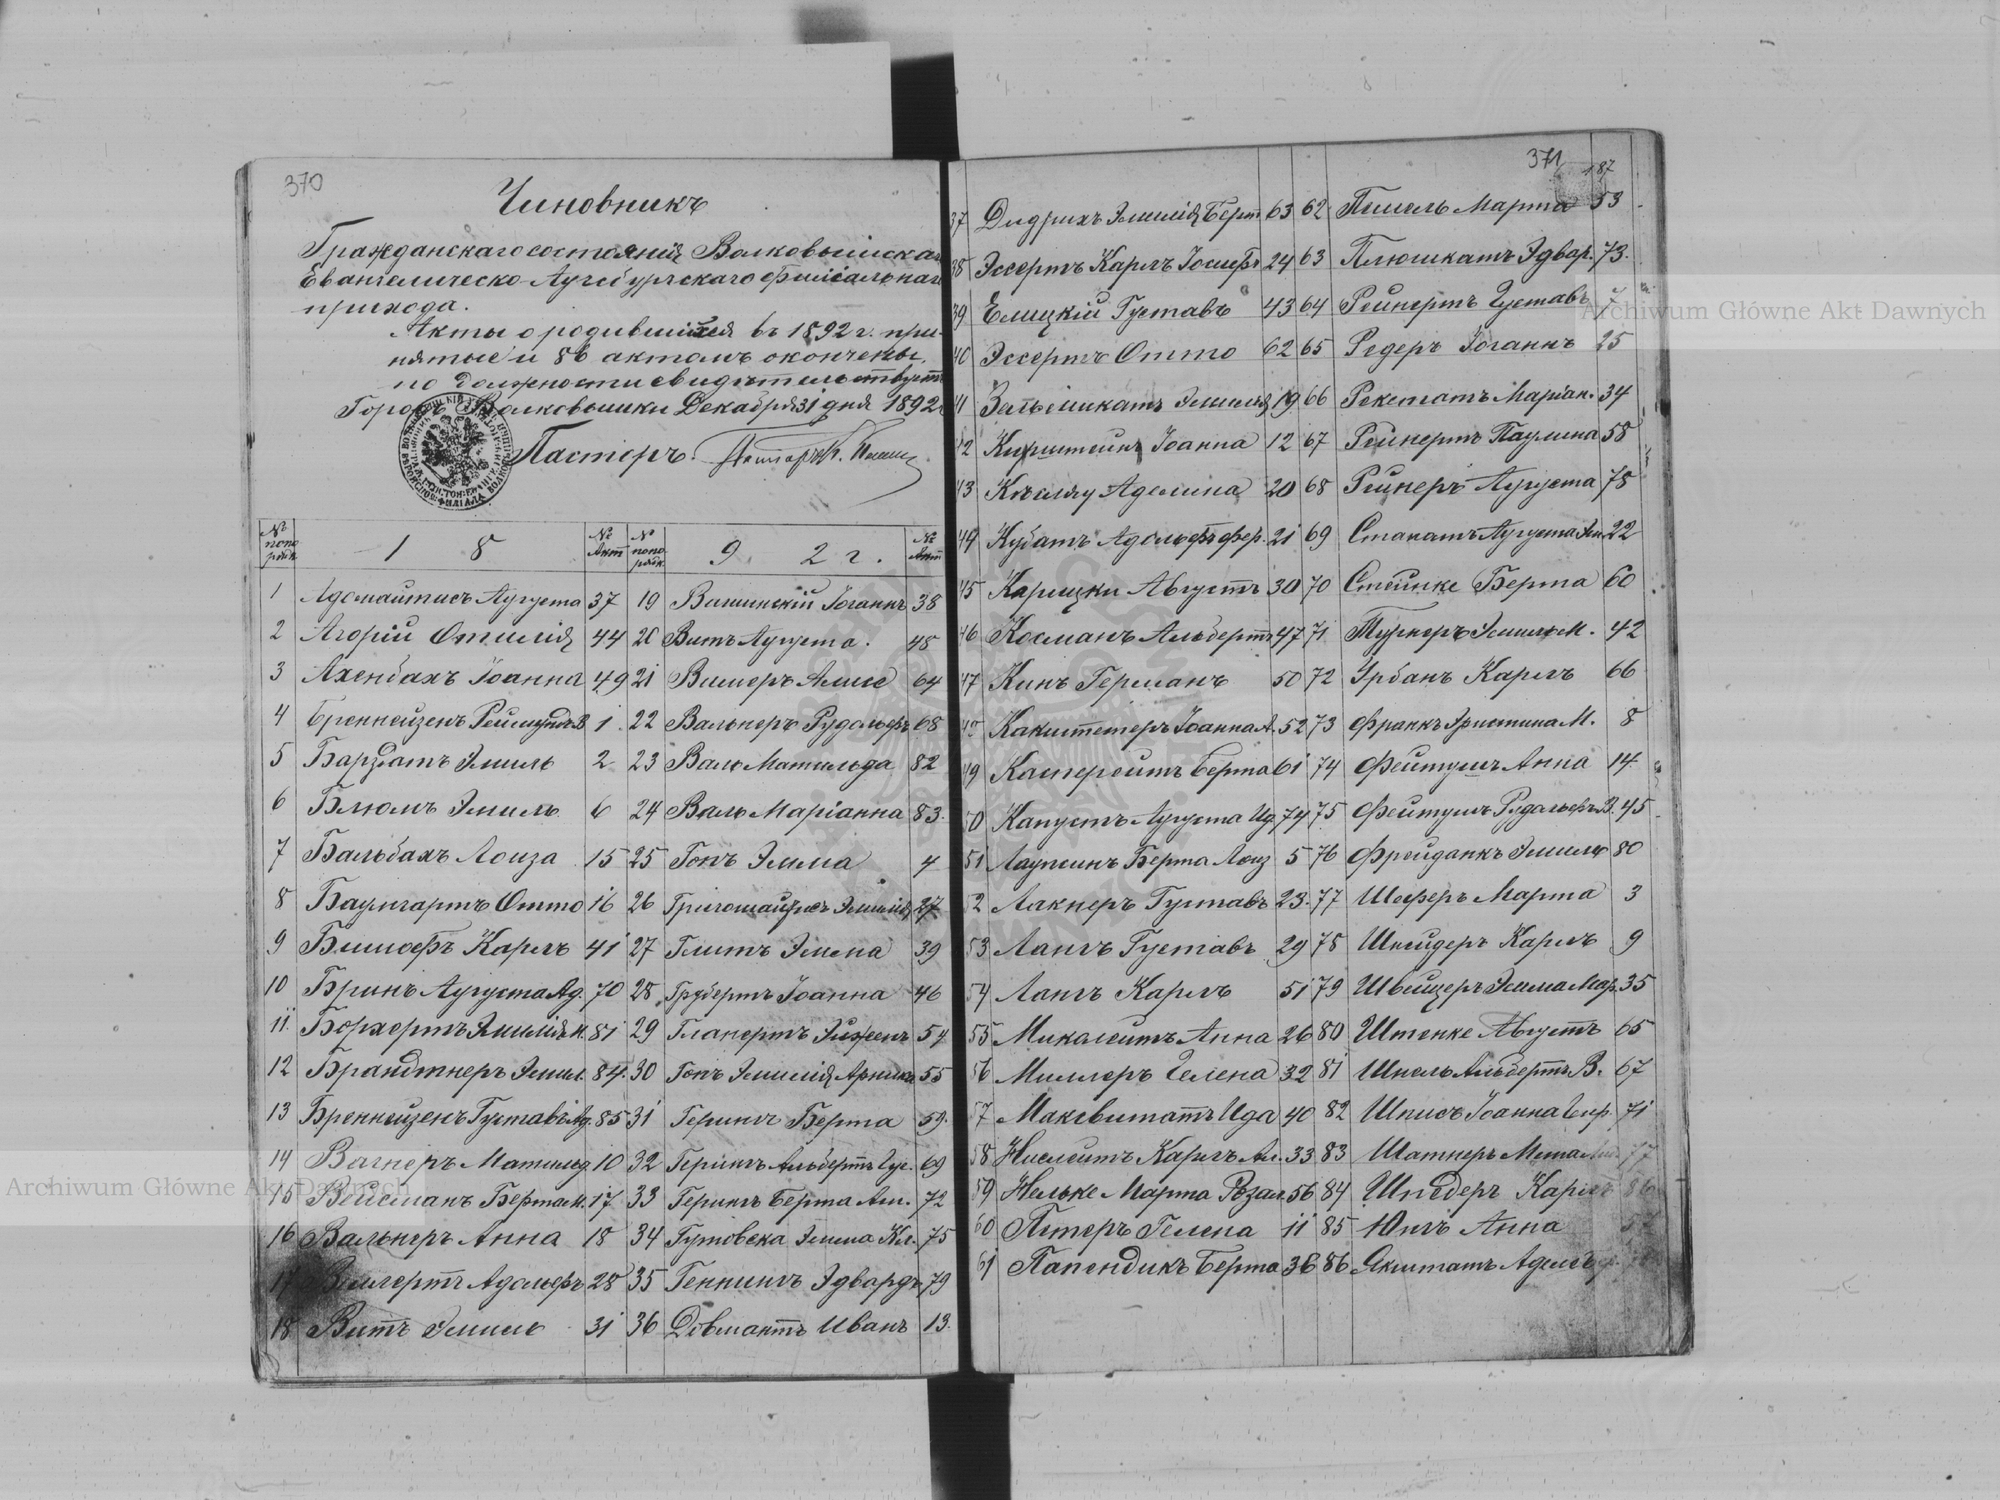 370
Чиновникъ
Гражданскаго состоянія Волковышскаго
Евангелическо-Аугсбургскаго филіальнаго
прихода.
Акты о родившихся въ 1892 г. при-
нятые и 86 актомъ окончены,
по должности свидѣтельствуетъ
Городъ Волковышки Декабря 31 дня 1892 г.
Пасторъ.
№ попо рядк. 1 8 № Акт № попо рядк. 9 2 г. № Акт
1 Адомайтисъ Аугуста 37 19 Вишинскій Іоганнъ 38
2 Агорій Отилія 44 20 Витъ Аугуста. 48
3 Ахенбахъ Іоанна 49 21 64
4 Бреннейзенъ Реймундъ В. 1 22 Вальнеръ Рудольфъ 68
5 Барздатъ Эмиль 2 23 Валь Матильда 82
6 Блюмъ Эмиль 6 24 Валь Маріанна 83.
7 Бальбахъ Лоиза 15 25 Гопъ Эмма 4
8 Баумгартъ Отто 16 26 Эмилія 27
9 Бишофъ Карлъ 41 27 39
10 Бринъ Аугуста Ад. 70 28 Грубертъ Іоанна 46
11. Борхертъ Эмилія 81 29 54
12 Брандтнеръ Эмил. 84. 30 Гопъ Эмилія 55
13 Бреннейзенъ Густавъ Ад. 85 31 Герингъ Берта 59.
14 Вагнеръ Матильд 10 32 Герингъ Альбертъ Гус. 69
15 Вейсманъ Берта М. 17 33 Герингъ Берта Ам. 72
16 Вальнеръ Анна 18 34 Гутовска Эмма Кл. 75
17 Адольфъ 28 35 Геннингъ Эдвардъ 79
18 Витъ Эмиль 31 36 Довмантъ Иванъ 13.
371
187
37 Дидрихъ Эмилія Берт. 63 62 Марта 53
38 Эссертъ Карлъ Іосифъ 24 63 Плюшкатъ Эдвар. 73.
39 Елицкій Густавъ 43 64 Рейнертъ Густавъ 7
40 Эссертъ Отто 62 65 Редеръ Іоганнъ 25
41 Эмилія 19 66 Рекстатъ Маріан. 34
42 Кирштейнъ Іоанна 12 67 Рейнертъ Паулина 58
43 Аделина 20 68 Рейнеръ Аугуста 78
44 Кубатъ Адольфъ Фер. 21 69 Стакатъ Аугуста 22
45 Карицки Августъ 30 70 Стейнке Берта 60
46 Косманъ Альбертъ 47 71 Турнеръ Эмиль М. 42
47 Кинъ Германъ 50 72 Урбанъ Карлъ 66
48 Какштетеръ Іоанна А. 52 73 Франкъ Христина М. 8
49 Касперейтъ Берта 61 74 Фейтушъ Анна 14
50 Капустъ Аугуста Ид. 74 75 Фейтушъ Рудольфъ В. 45
51 Берта Лоиз 5 76 Фрейданкъ Эмиль 80
52 Лакнеръ Густавъ 23. 77 Шеферъ Марта 3
53 Лангъ Густавъ 29 78 Шнейдеръ Карлъ 9
54 Лангъ Карлъ 51 79 Швейцеръ Эмма Мар. 35
55 Миколейтъ Анна 26 80 Штенке Августъ 65
56 Миллеръ Гелена 32 81 Шнель Альбертъ В. 67
57 Максвитатъ Ида 40 82 Іоанна 71
58 Нислейтъ Карлъ Ал. 33 83 Шатнеръ 77
59 Нельке Марта Розал. 56 84 Шнедеръ Карлъ 86
60 Петеръ Гелена 11 85 Юнгъ Анна 57
61 Папендикъ Берта 36 86 Якштатъ
Archiwum Główne Akt Dawnych
Archiwum Główne Akt Dawnych